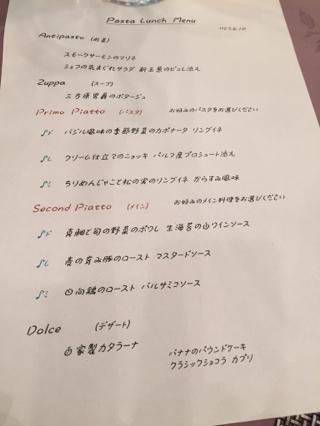 Pasta Lunch Menu
Antipasto (前菜)
スモークサーモンのマリネ
シェフの気まぐれサラダ 新玉葱のピュレ添え
Zuppa (スープ)
のポタージュ
Primo Piatto (パスタ) お好みのパスタをお選びください
バジル風味の季節野菜のカポナータ リングイネ
クリーム仕立てのニョッキ パルマ産プロシュート添え
ちりめんじゃこと松の実のリングイネ からすみ風味
Second Piatto (メイン) お好みのメイン料理をお選びください
真鯛と旬の野菜のポワレ 生海苔の白ワインソース
麦の育み豚のロースト マスタードソース
日向鶏のロースト バルサミコソース
Dolce (デザート)
自家製カタラーナ
バナナのパウンドケーキ
クラシックショコラ カプリ